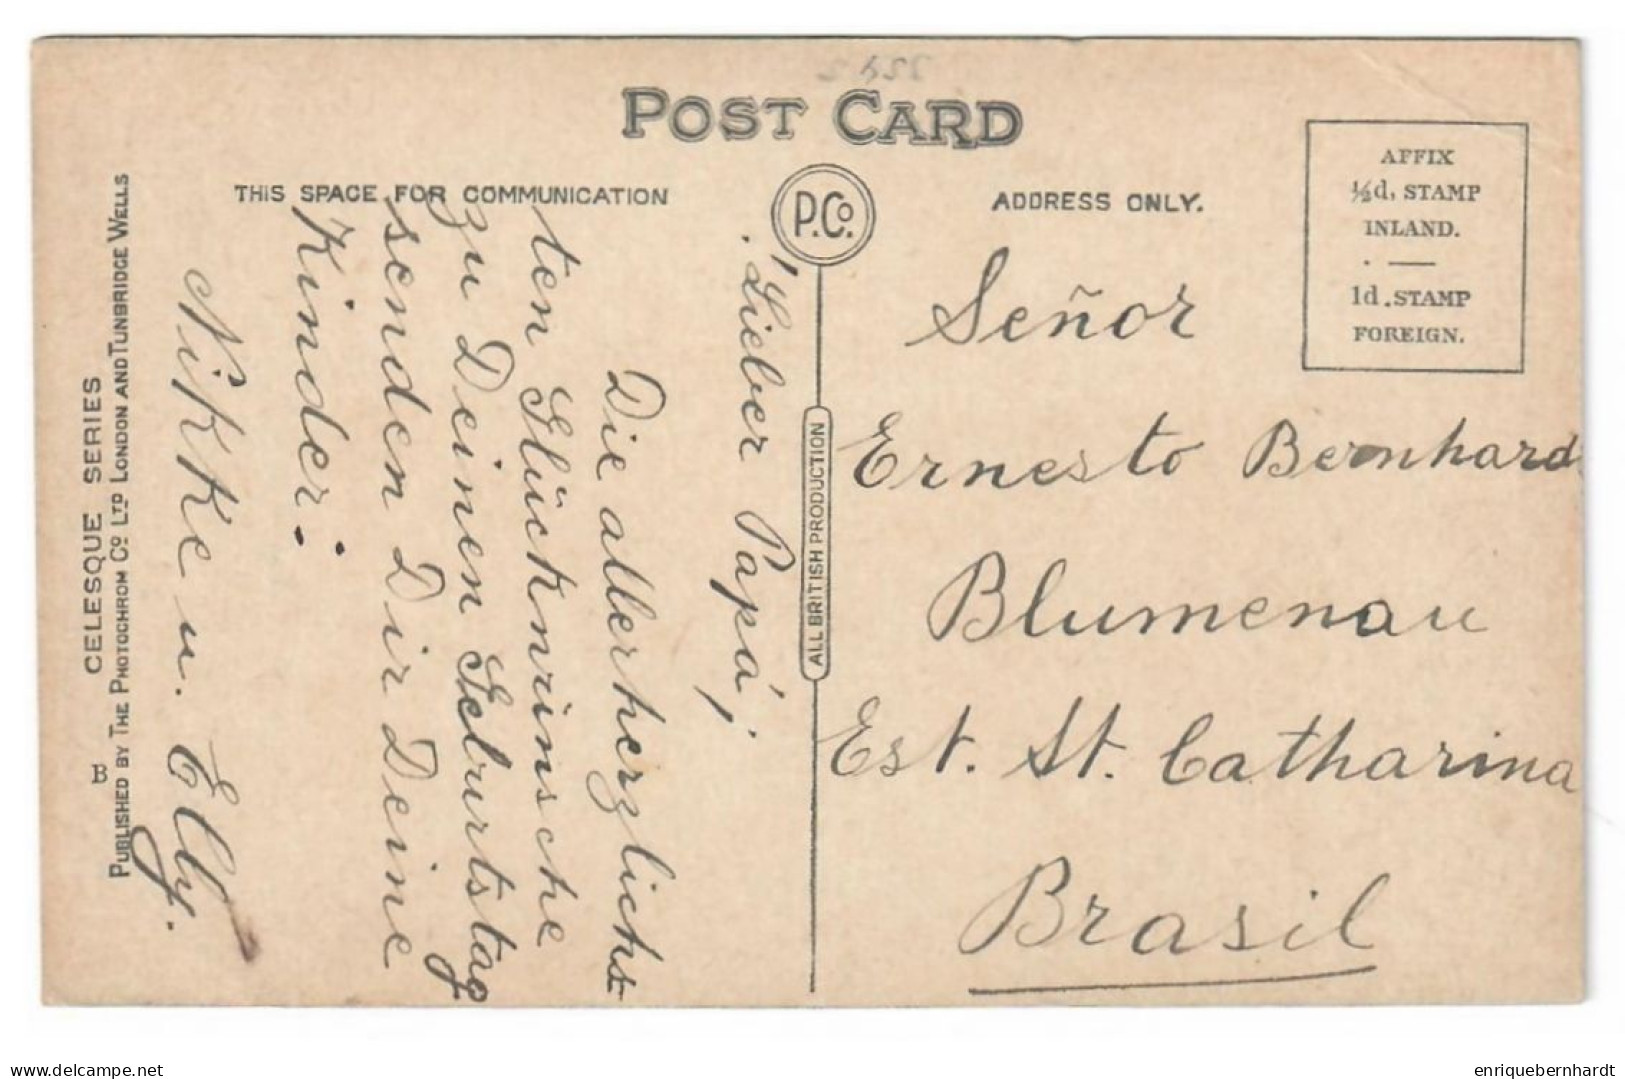 POST CARD
THIS SPACE FOR COMMUNICATION
P.Co.
ADDRESS ONLY.
AFFIX
½d. STAMP
INLAND.
1d. STAMP
FOREIGN.
Lieber Papá,
Die allerherzlichs
ten Glückwünsche
zu Deinen Geburtstag
senden Dir Deine
Kinder:
Nikke u. Elly.
CELESQUE SERIES
B
PUBLISHED BY THE PHOTOCHROM CO. LTD LONDON AND TUNBRIDGE WELLS
ALL BRITISH PRODUCTION
Señor
Ernesto Bernhard
Blumenau
Est. St. Catharina
Brasil
delcampe.net
enriquebernhardt